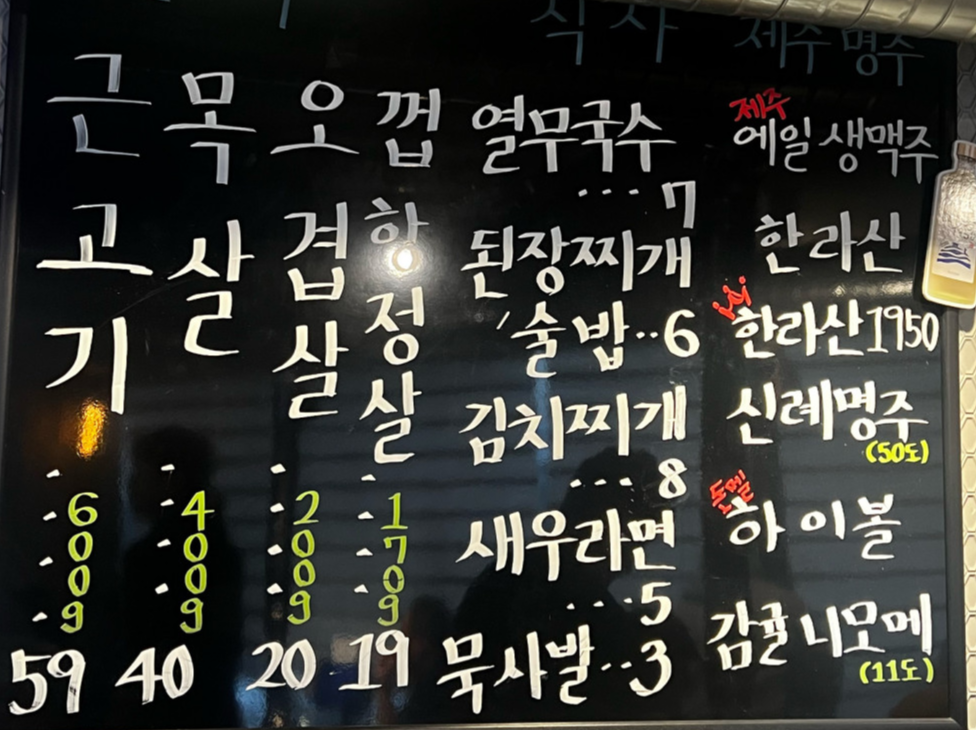 식사
제주명주
근고기
600g
59
목살
400g
40
오겹살
200g
20
껍항정살
170g
19
열무국수
...7
된장찌개
술밥..6
김치찌개
...8
새우라면
...5
묵사발..3
제주
에일 생맥주
한라산
한라산1950
신례명주
(50도)
돈멜
하이볼
감귤 니모메
(11도)